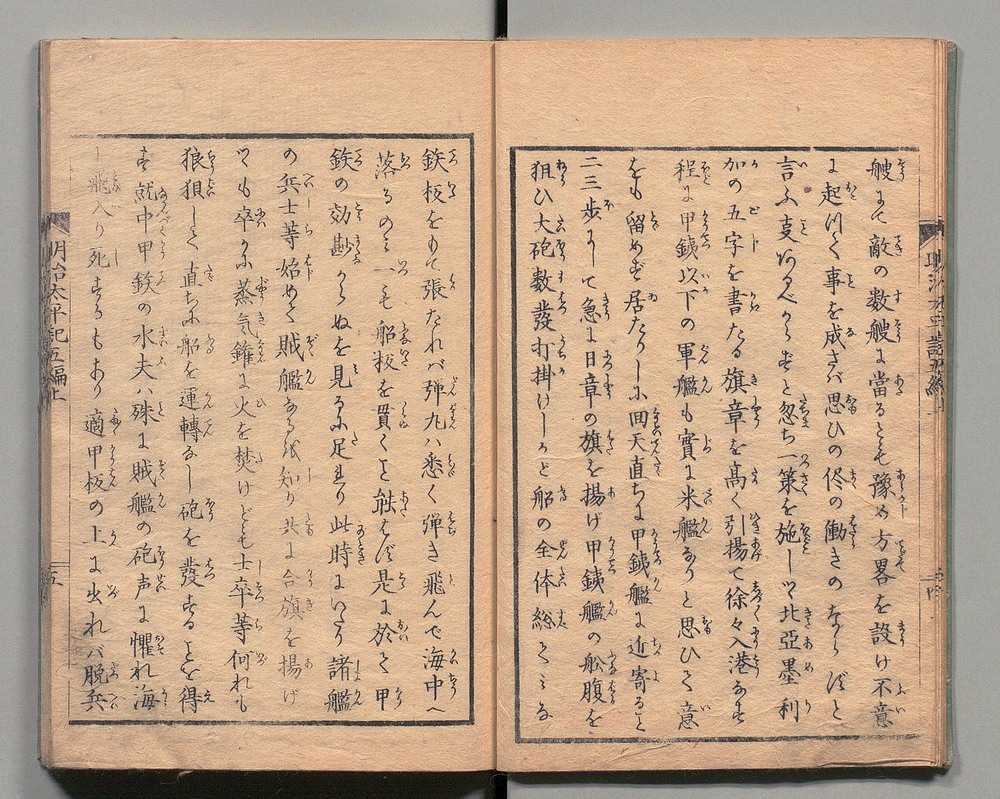 艘にて敵の数艘に當るとも豫め方畧を設け不意
に起つて事を成さバ思ひの侭の働きのならぬと
言ふ支あるべからずと忽ち一策を施しツヽ北亜墨利
加の五字を書たる旗章を高く引揚て徐々入港なす
程に甲鉄以下の軍艦も實に米艦なりと思ひて意
をも留めず居たりしに回天直ちに甲鉄艦に近寄ると
二三歩にして急に日章の旗を揚げ甲鉄艦の舩腹を
狙ひ大砲数發打掛けしかど船の全体総てミな
鉄板をもて張たれバ弾丸ハ悉く弾き飛んで海中へ
落るのミ一も船板を貫くこと能はず是に於て甲
鉄の効尠からぬを見るに足れり此時にいたり諸艦
の兵士等始めて賊艦なるを知り共に合旗を揚げ
ツヽも卒かに蒸気鑵に火を焚けども士卒等何れも
狼狽して直ちに船を運轉なし砲を發することを得
ず就中甲鉄の水夫ハ殊に賊艦の砲声に懼れ海
に飛入り死するもあり適甲板の上に出れバ脱兵
明治太平記五編上
五